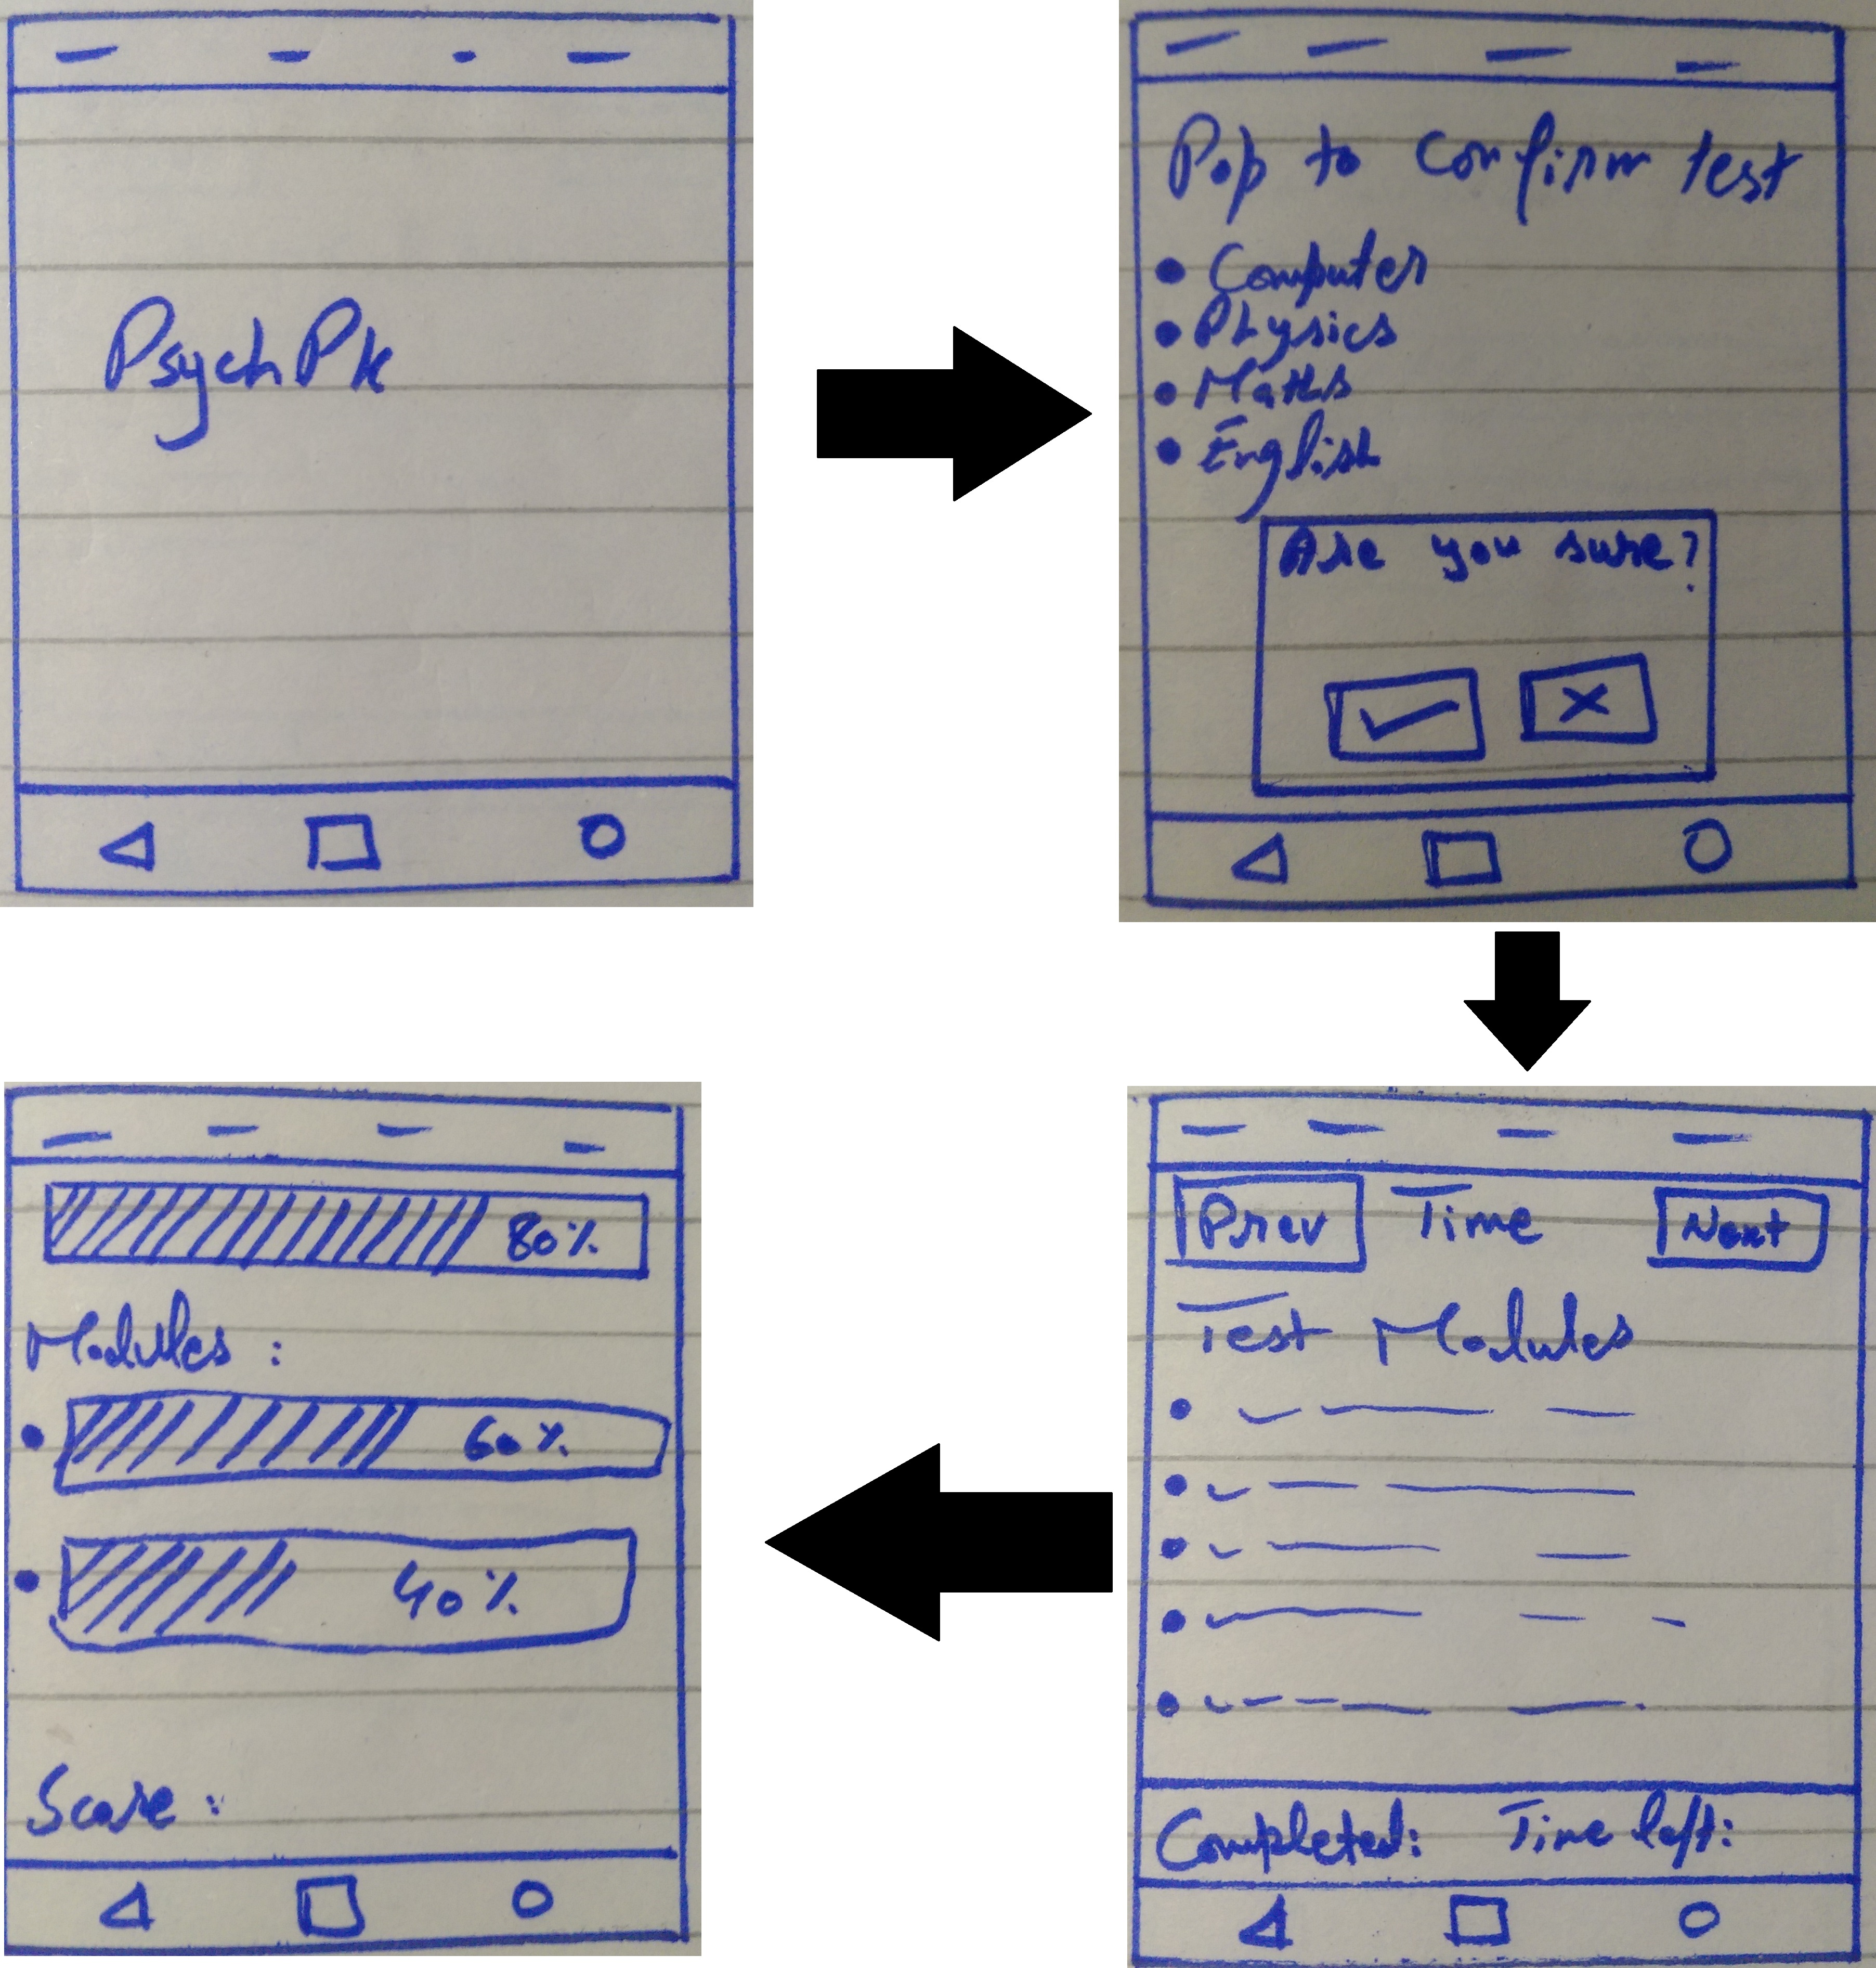 PsychPk
Pop to confirm test
• Computer
• Physics
• Maths
• English
Are you sure?
Prev Time Next
Test Modules
Completed: Time left:
80%
Modules :
60%
40%
Score :